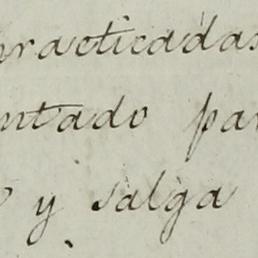 practicadas
ntado par
y salga